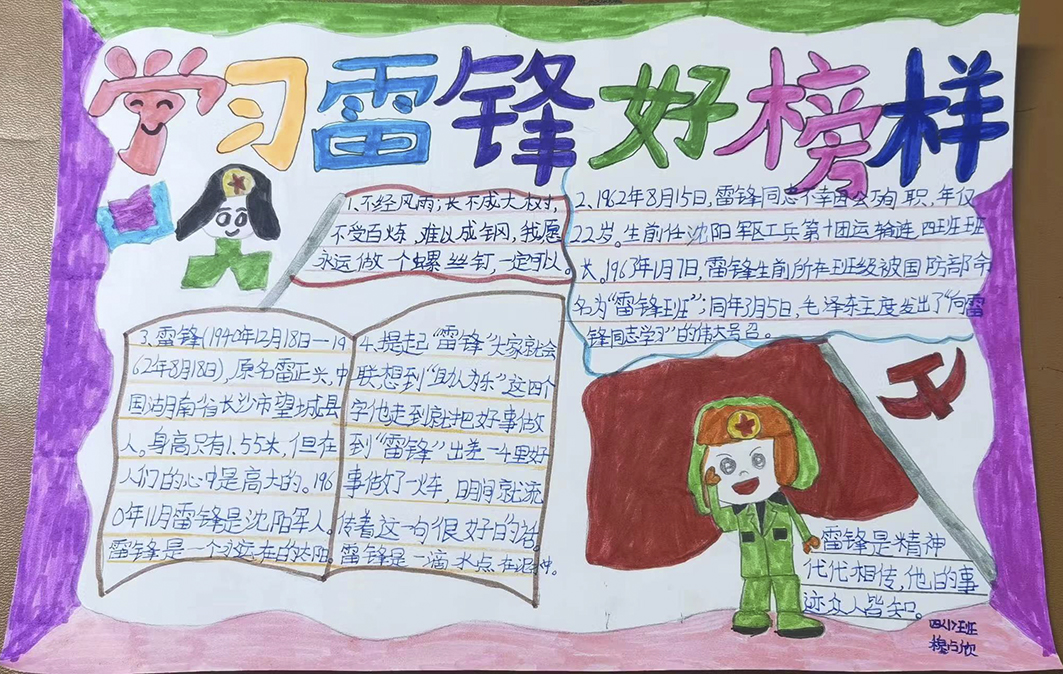 学习雷锋好榜样
1.不经风雨;长不成大树,
不受百炼,难以成钢,我愿
永远做一个螺丝钉,一定可以。
2、1962年8月15日,雷锋同志不幸因公殉职,年仅
22岁。生前任沈阳军区工兵第十团运输连四班班
长。1963年1月7日,雷锋生前所在班级被国防部命
名为“雷锋班”;同年3月5日,毛泽东主度发出了“向雷
锋同志学习”的伟大号召。
3、雷锋(1940年12月18日—19
62年8月18日),原名雷正兴,中
国湖南省长沙市望城县
人。身高只有1.55米,但在
人们的心中是高大的。196
0年11月雷锋是沈阳军人。
雷锋是一个永远在的太阳
4、提起“雷锋”大家就会
联想到“助人为乐”这四个
字他走到就把好事做
到“雷锋”出差一千里好
事做了一火车,明明就流
传着这一句很好的话。
雷锋是一滴水点在泥中。
雷锋是精神
代代相传,他的事
迹众人皆知。
四(1)班